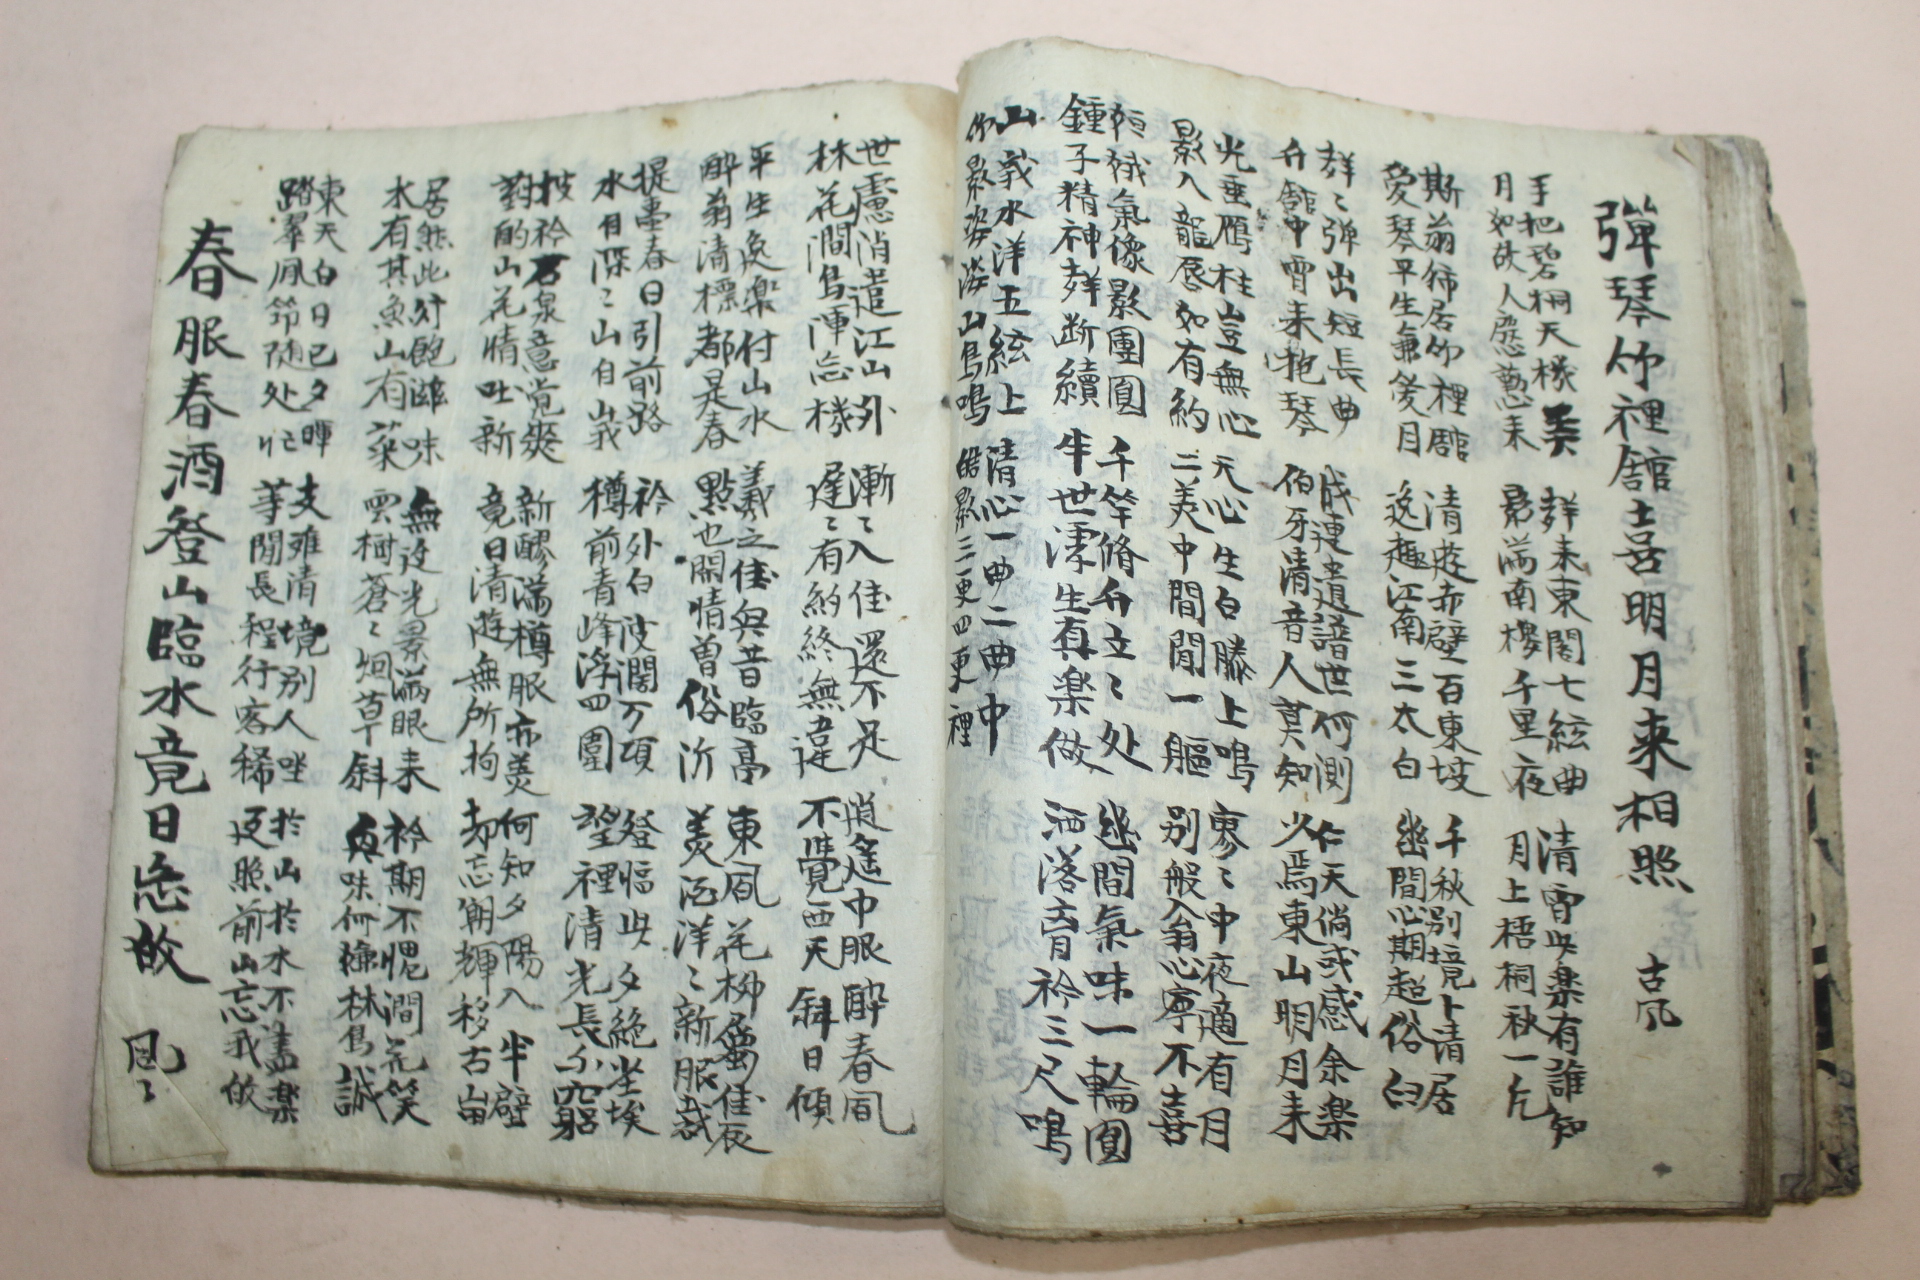 彈琴竹裡舘喜明月来相照 古風
手把碧桐天機美 群来東閣七絃曲 清宵此楽有誰知
月如故人慇懃来 影滿南樓千里夜 月上梧桐秋一片
斯翁居竹裡舘 清遊赤壁百東坡 千秋別境卜清居
愛琴平生兼愛月 逸趣江南三太白 幽間心期超俗臼
群〻弹出短長曲 成連遺譜世何測 仁天倘或感余楽
竹舘中宵来抱琴 伯牙清音人莫知 少焉東山明月来
光垂雁柱豈無心 天心生白膝上鳴 寥〻中夜適有月
影入龍唇如有約 二美中間閒一軀 別般翁心寧不喜
姮娥氣像影團圓 千竿脩竹立〻处 幽間氣味一輪圓
鍾子精神群断續 半世漂生有真楽 洒落奇衿三尺鳴
山峩水洋五絃上 清心一曲二曲中
竹影婆淡山鳥鳴 皓影三更四更裡
世慮消遣江山外 漸〻入佳還不足 逍遙中眼酔春風
林花澗鳥渾忘機 遲〻有約終無違 不覺西天斜日傾
平生處楽付山水 羲之佳興昔臨亭 東風花柳屬佳辰
酔翁清標都是春 點也閑情曽俗沂 美酒洋〻新服裁
堤畫春日引前路 衿外白波闊万頃 登臨此夕絶坐埃
水自深〻山自峩 樽前青峰浮四圍 望裡清光長不窮
披衿石泉意覚爽 新醪滿樽服亦美 何知夕陽入半壁
對酌山花情吐新 竟日清遊無所拘 却忘朝輝移古崗
居然此行飽滋味 無邊光景滿眼来 衿期不愧澗花笑
水有其魚山有菜 雲樹蒼〻烟草斜 興味何嫌林鳥誠
東天白日已夕暉 支離清境別人坐 於山於水不盡楽
踏翠風節随处忙 等閒長程行客稀 返照前山忘我故
春服春酒登山臨水竟日忘故 風〻